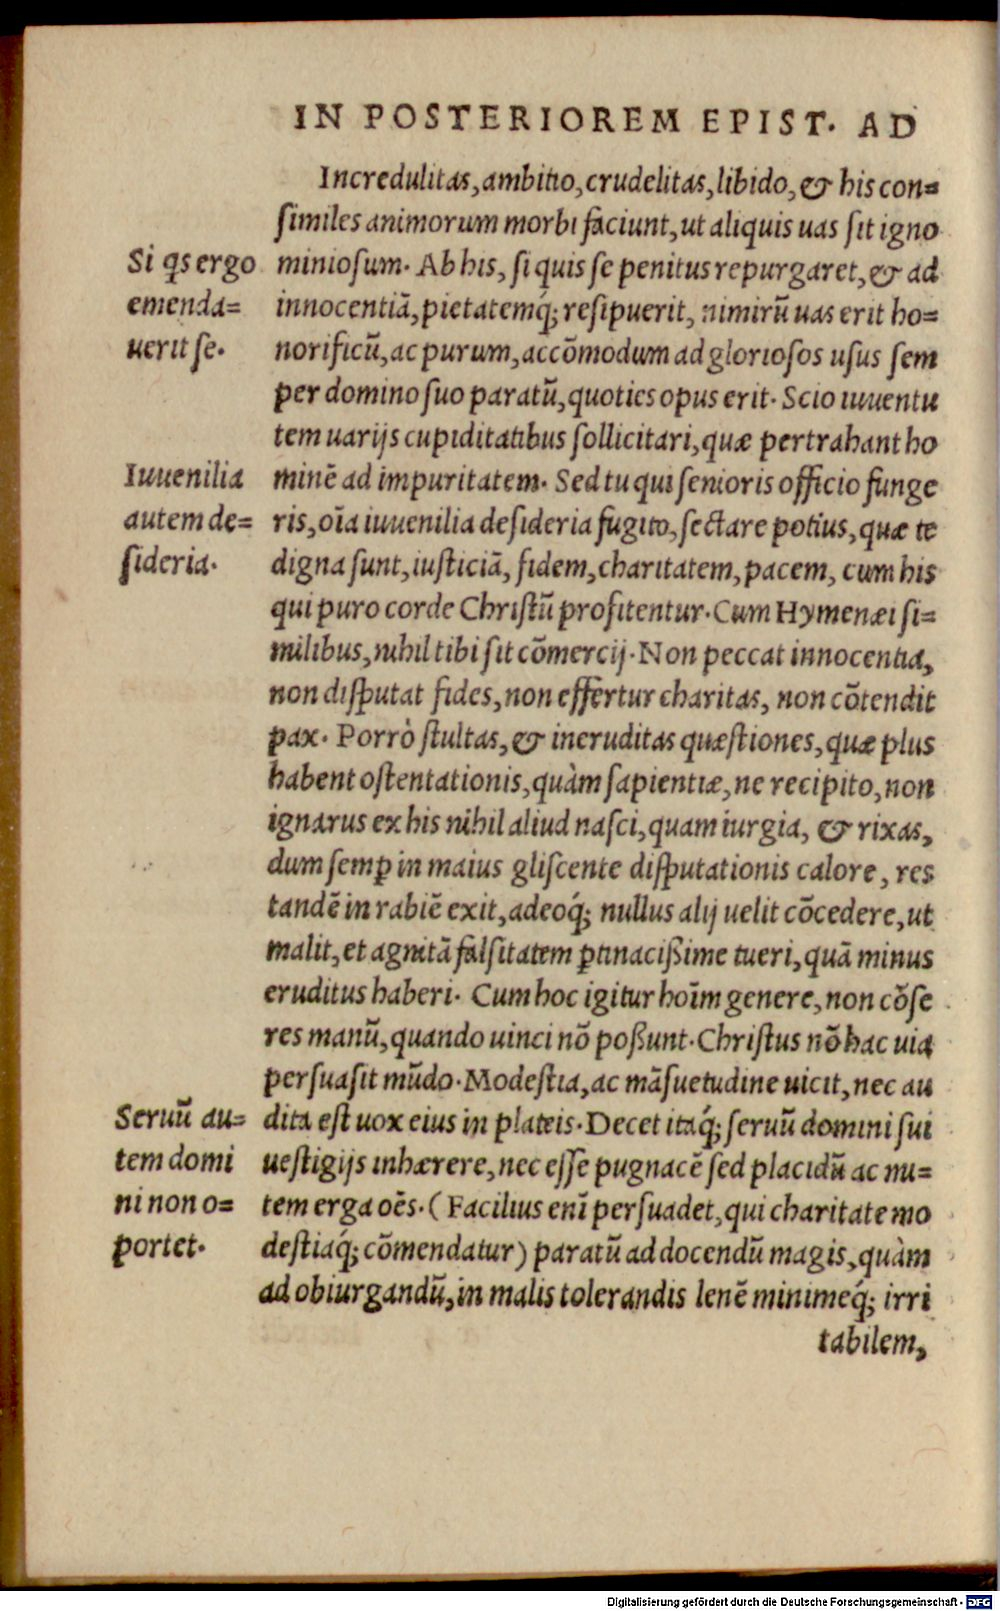 IN POSTERIOREM EPIST. AD
Incredulitas, ambitio, crudelitas, libido, & his con=
similes animorum morbi faciunt, ut aliquis uas sit igno
miniosum. Ab his, si quis se penitus repurgaret, & ad
innocentiā, pietatemq́; resipuerit, nimirū uas erit ho=
norificū, ac purum, accōmodum ad gloriosos usus sem
per domino suo paratū, quoties opus erit. Scio iuuentu
tem uarijs cupiditatibus sollicitari, quæ pertrahant ho
minē ad impuritatem. Sed tu qui senioris officio funge
ris, oīa iuuenilia desideria fugito, sectare potius, quæ te
digna sunt, iusticiā, fidem, charitatem, pacem, cum his
qui puro corde Christū profitentur. Cum Hymenæi si=
milibus, nihil tibi sit cōmercij. Non peccat innocentia,
non disputat fides, non effertur charitas, non cōtendit
pax. Porrò stultas, & ineruditas quæstiones, quæ plus
habent ostentationis, quàm sapientiæ, ne recipito, non
ignarus ex his nihil aliud nasci, quam iurgia, & rixas,
dum semꝑ in maius gliscente disputationis calore, res
tandē in rabiē exit, adeoq́; nullus alij uelit cōcedere, ut
malit, et agnitā falsitatem ꝑtinacißime tueri, quā minus
eruditus haberi. Cum hoc igitur hoīm genere, non cōse
res manū, quando uinci nō poßunt. Christus nō hac uia
persuasit mūdo. Modestia, ac māsuetudine uicit, nec au
dita est uox eius in plateis. Decet itaq́; seruū domini sui
uestigijs inhærere, nec esse pugnacē sed placidū ac mi=
tem erga oēs. (Facilius enī persuadet, qui charitate mo
destiaq́; cōmendatur) paratū ad docendū magis, quàm
ad obiurgandū, in malis tolerandis lenē minimeq́; irri
tabilem,
Si qs ergo
emenda=
uerit se.
Iuuenilia
autem de=
sideria.
Seruū au=
tem domi
ni non o=
portet.
Digitalisierung gefördert durch die Deutsche Forschungsgemeinschaft - DFG